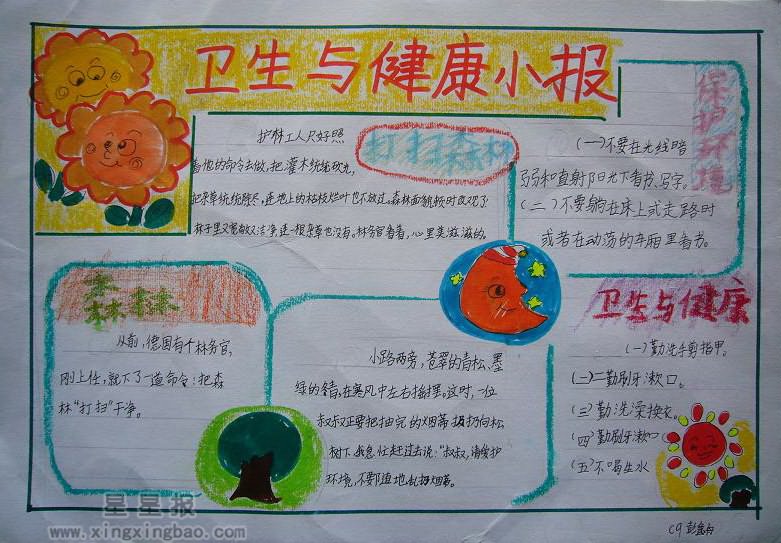 卫生与健康小报
打扫森林
护林工人只好照
着他的命令去做,把灌木统统砍光,
把杂草统统除尽,连地上的枯枝烂叶也不放过。森林面貌顿时改观了
林子里又宽敞又洁净连一根杂草也没有。林务官看着,心里美滋滋的。
保护环境
(一)不要在光线暗
弱和直射阳光下看书、写字。
(二)不要躺在床上或走路时
或者在动荡的车厢里看书。
森林
从前,德国有个林务官,
刚上任,就下了一道命令:把森
林“打扫”干净。
小路两旁,苍翠的青松、墨
绿的冬青,在寒风中左右摇摆。这时,一位
叔叔正要把抽完的烟蒂扔向松
树下,我急忙赶过去说:“叔叔,请爱护
环境,不要随地乱扔烟蒂。
卫生与健康
(一)勤洗手剪指甲。
(二)勤刷牙漱口。
(三)勤洗澡换衣。
(四)勤刷牙漱口
(五)不喝生水
星星报
www.xingxingbao.com
C9 彭